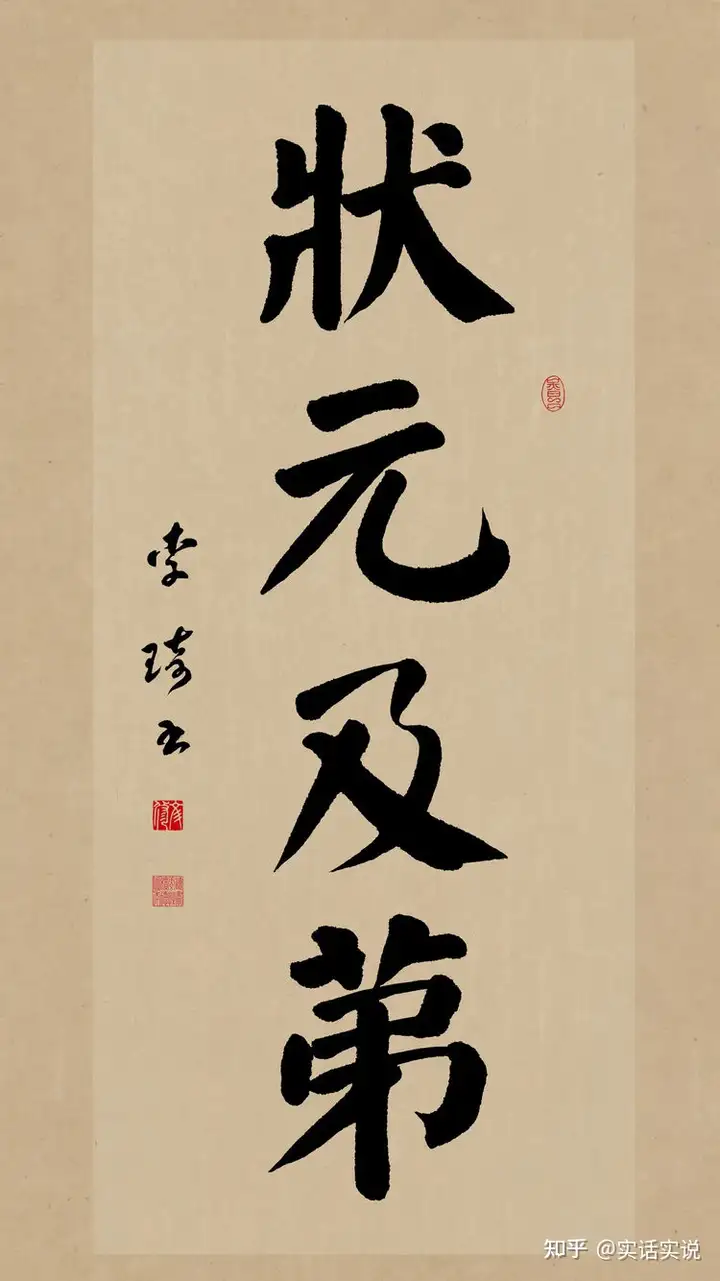 狀元及第
李琦书
知乎 @实话实说